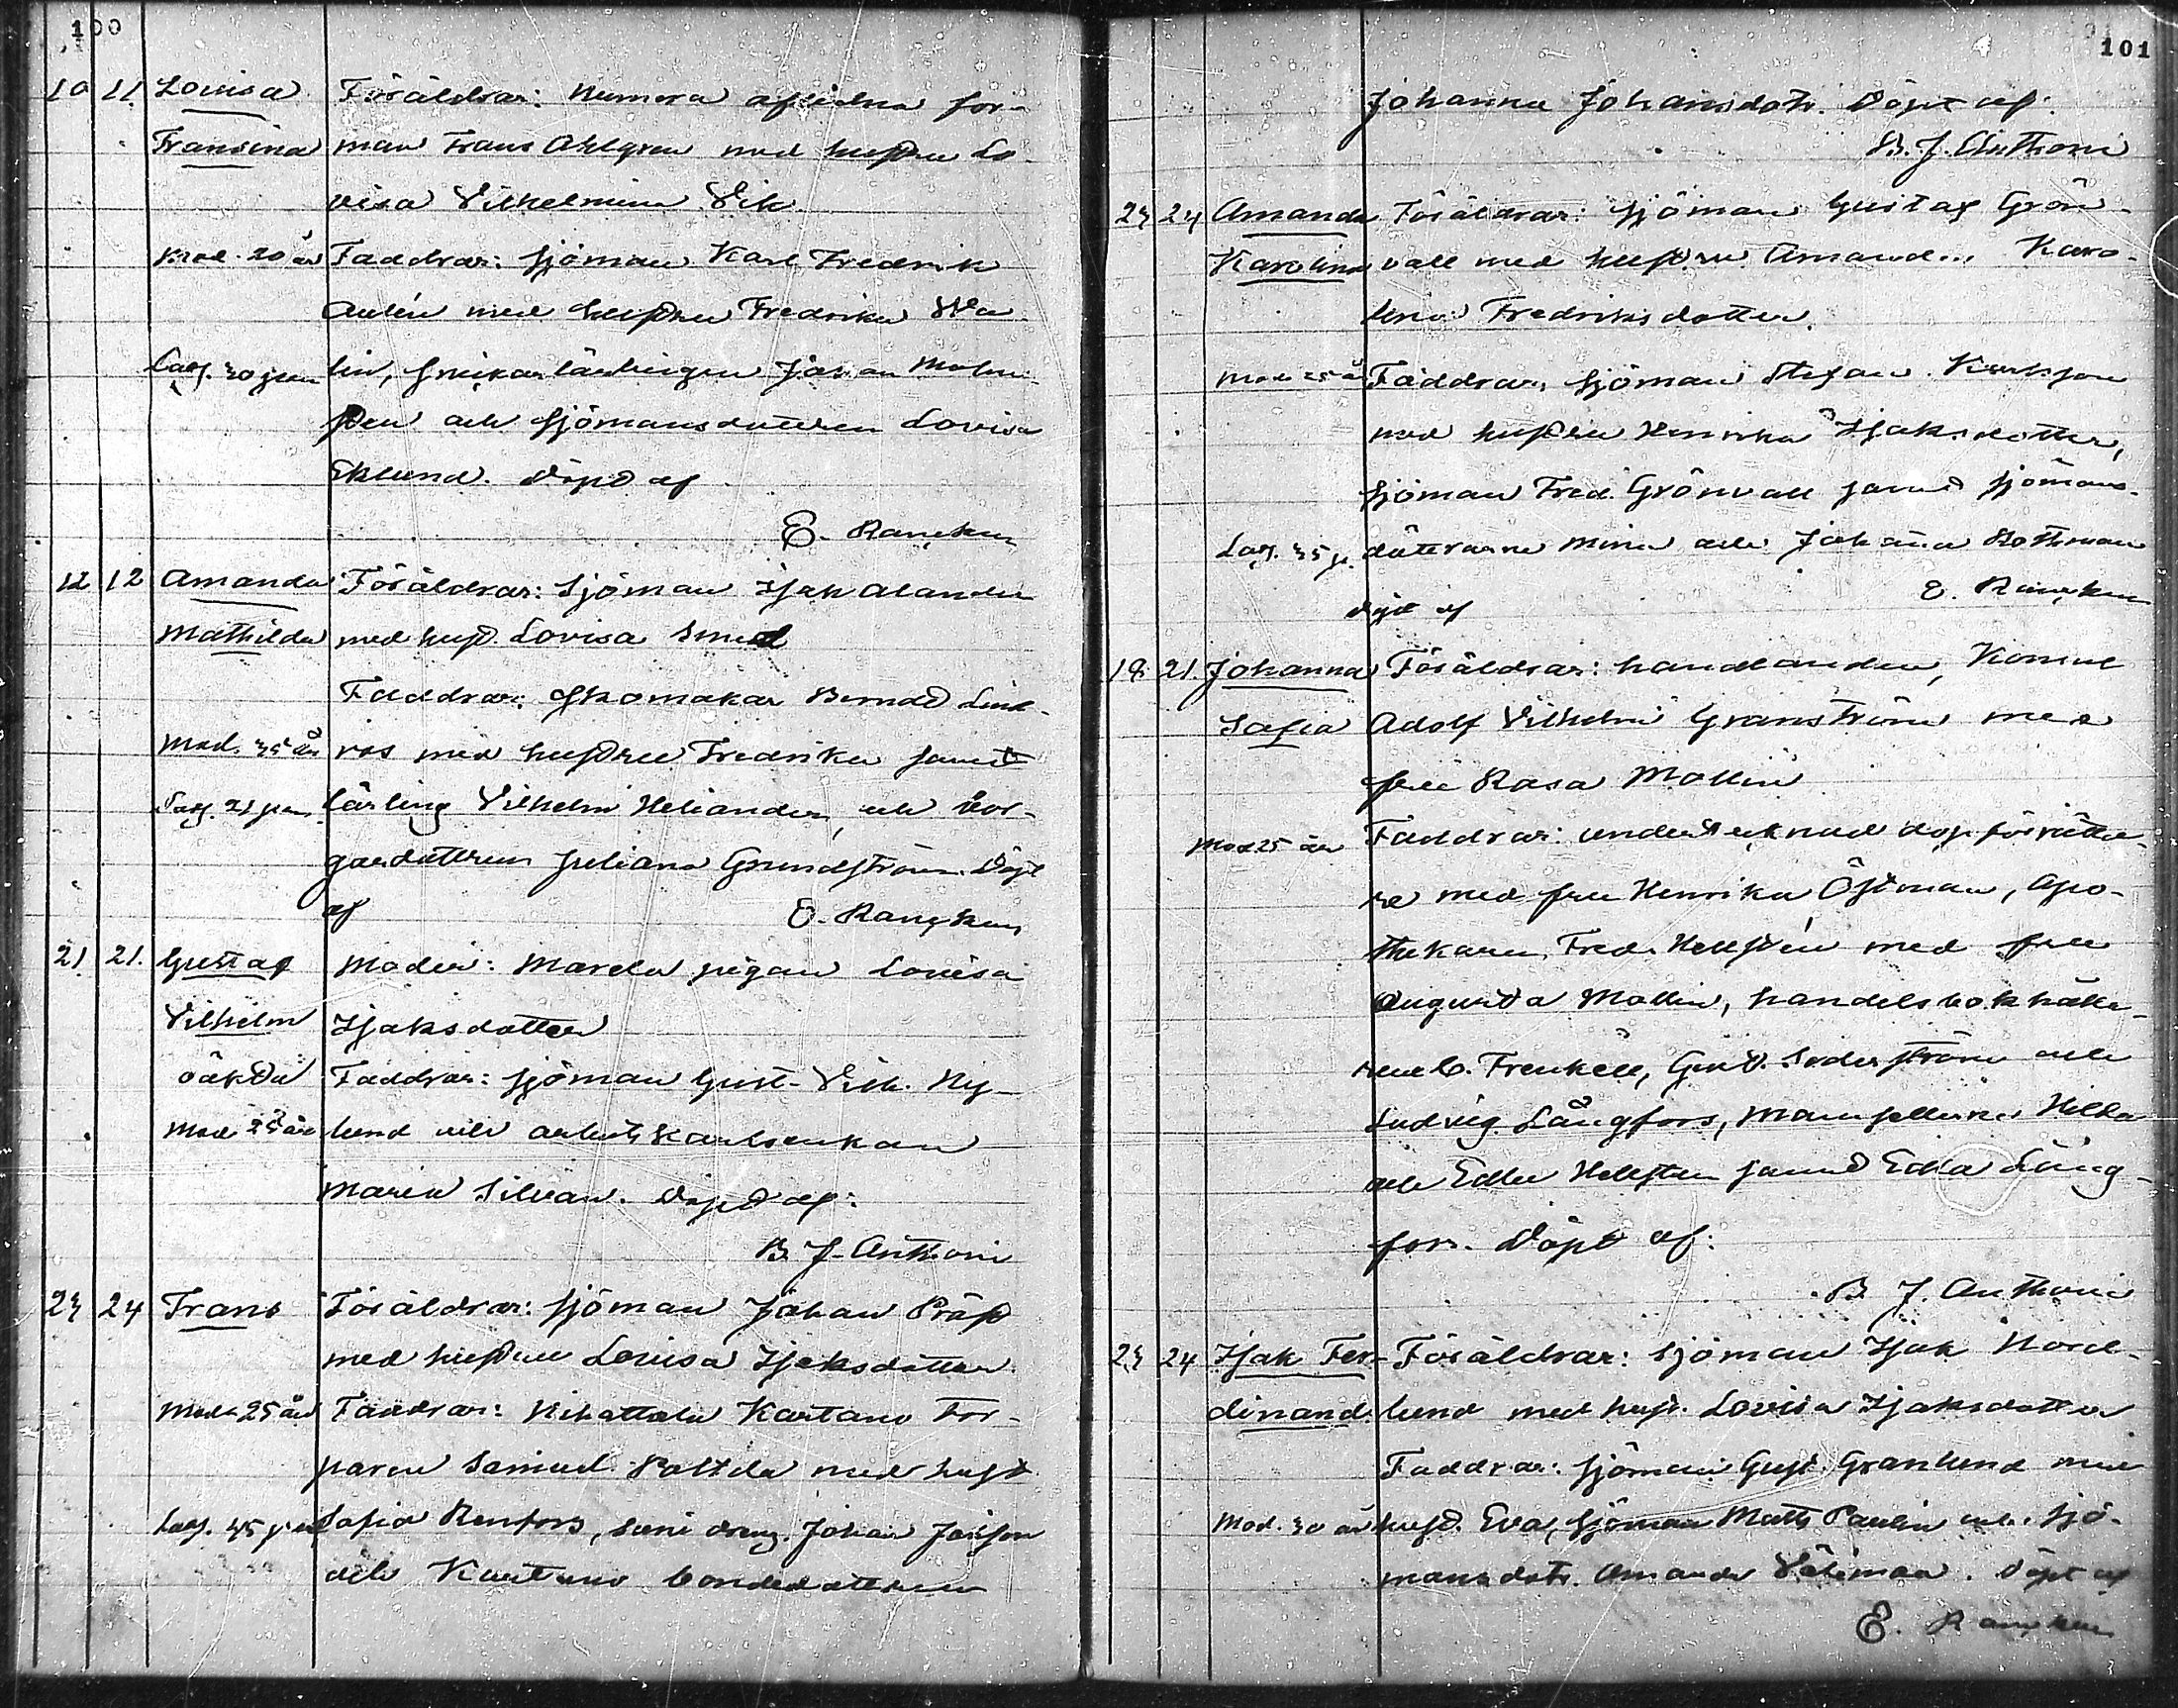 100
10 11. Lovisa Föräldrar: Numera aflidna for-
Fransina man Frans Ahlgren med hustru Lo-
visa Vilhelmina Vik
Mod. 20 år Faddrar: sjöman Karl Fredrik
Aulin med hustru Fredrika Wa-
Latg. 30 jan lin, snickarlärlingen Johan Malm-
sten och sjömansdottren Lovisa
Eklund. Döpt af
E. Rancken
12 12 Amanda Föräldrar: Sjöman Isak Alander
Mathilda med hust. Lovisa Smed
Faddrar: Skomakar Berndt Lind-
Mod. 35 år ros med hustru Fredrika samt
Latg. 21 jan. lärling Vilhelm Heliander, och bor-
gardottren Juliana Grundström. Döpt
af E. Rancken
21 21. Gustaf Moder: Marela pigan Lovisa
Vilhelm Isaksdotter
oäkta Faddrar: sjöman Gust. Vilh. Ny-
Mod. 25 år lund och arbetskarlsenkan
Maria Silvan. Döpt af:
B. J. Anthoni
23 24 Frans Föräldrar: sjöman Johan Pröst
med hustru Lovisa Isaksdotter
Mod. 25 år Faddrar: Nihattala Kartano Tor-
paren Samuel med hust
Latg. 45 Sofia Renfors, samt dreng. Johan
och Kartano bondedottren
101
Johanna Johansdotr. Döpt af:
B. J. Anthoni
23 24 Amanda Föräldrar: sjöman Gustaf Grön-
Karolina vall med hustru Amanda Karo-
lina Fredriksdotter.
Mod. 25 år Faddrar, sjöman Stefan Karlsson
med hustru Henrika Isaksdotter,
sjöman Fred. Grönvall samt sjömans-
Latg. 35 döttrarne Mina och Johanna Bothman
döpt af E. Rancken
18 21. Johanna Föräldrar: handlanden, Konsul
Sofia Adolf Vilhelm Granström med
fru Rosa Mollin
Mod 25 år Faddrar: undertecknad dopförrätta-
re med fru Henrika Östman, Apo-
thekaren Fred. Hellstén med fru
Augusta Mollin, handelsbokhålla-
rene C. Frenkell, Gust. Söderström och
Ludvig Långfors, Mamsellerna Hilda
och Edla Hellsten samt Edla Lång-
fors. Döpt af:
B. J. Anthoni
23 24 Isak Fer- Föräldrar: Sjöman Isak Nord-
dinand. lund med hust. Lovisa Isaksdotter
Faddrar: sjöman Gust. Granlund med
Mod. 30 år hust. Eva, sjöman Matts Paulin och sjö-
mansdotr. Amanda Välimaa. Döpt af
E. Rancken